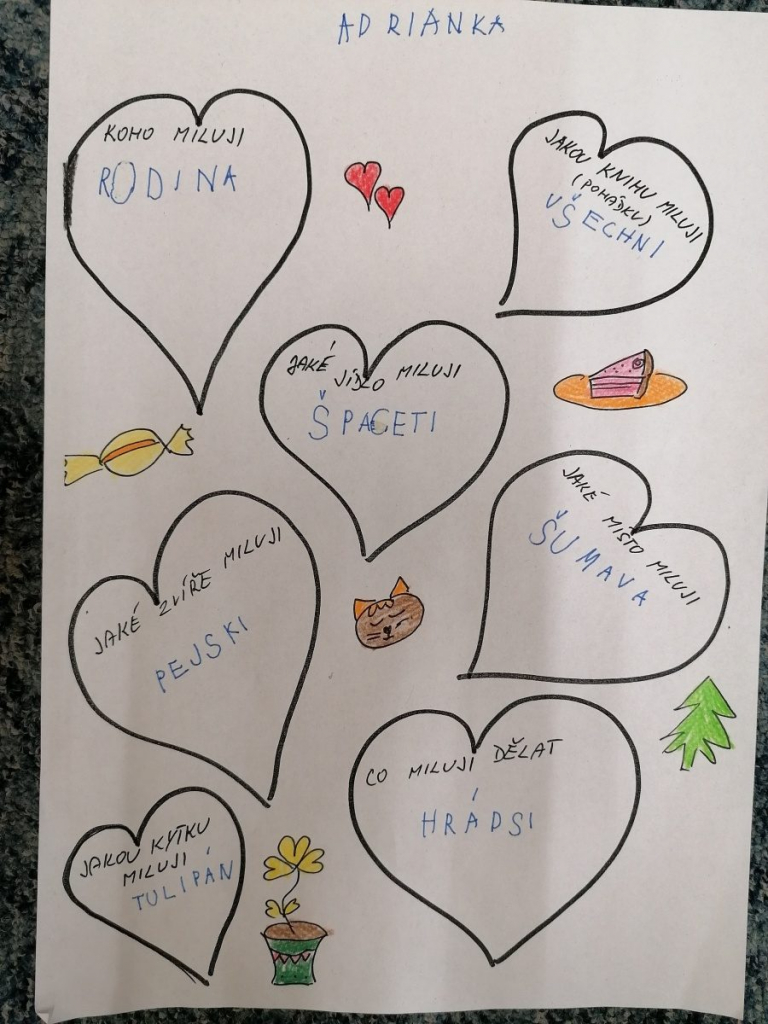 ADRIANKA
KOHO MILUJI
RODINA
JAKOU KNIHU MILUJI
(POHÁDKU)
VŠECHNI
JAKÉ JÍDLO MILUJI
ŠPAGETI
JAKÉ MÍSTO MILUJI
ŠUMAVA
JAKÉ ZVÍŘE MILUJI
PEJSKI
CO MILUJI DĚLAT
HRÁDSI
JAKOU KYTKU
MILUJI
TULIPÁN